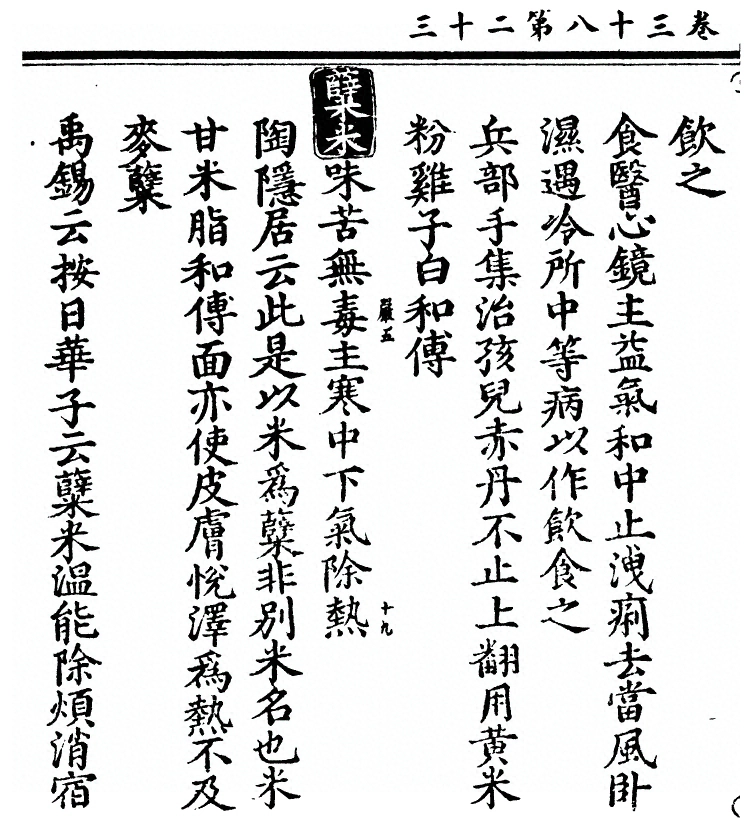 卷三十八第二十三
飲之
食醫心鏡主益氣和中止洩痢去當風卧
濕遇冷所中等病以作飲食之
兵部手集治孩兒赤丹不止上翻用黃米
粉雞子白和傅
糵米味苦無毒主寒中下氣除熱
嚴五
十九
陶隱居云此是以米為糵非別米名也米
甘米脂和傅面亦使皮膚悅澤爲熱不及
麥糵
禹錫云按日華子云糵米溫能除煩消宿